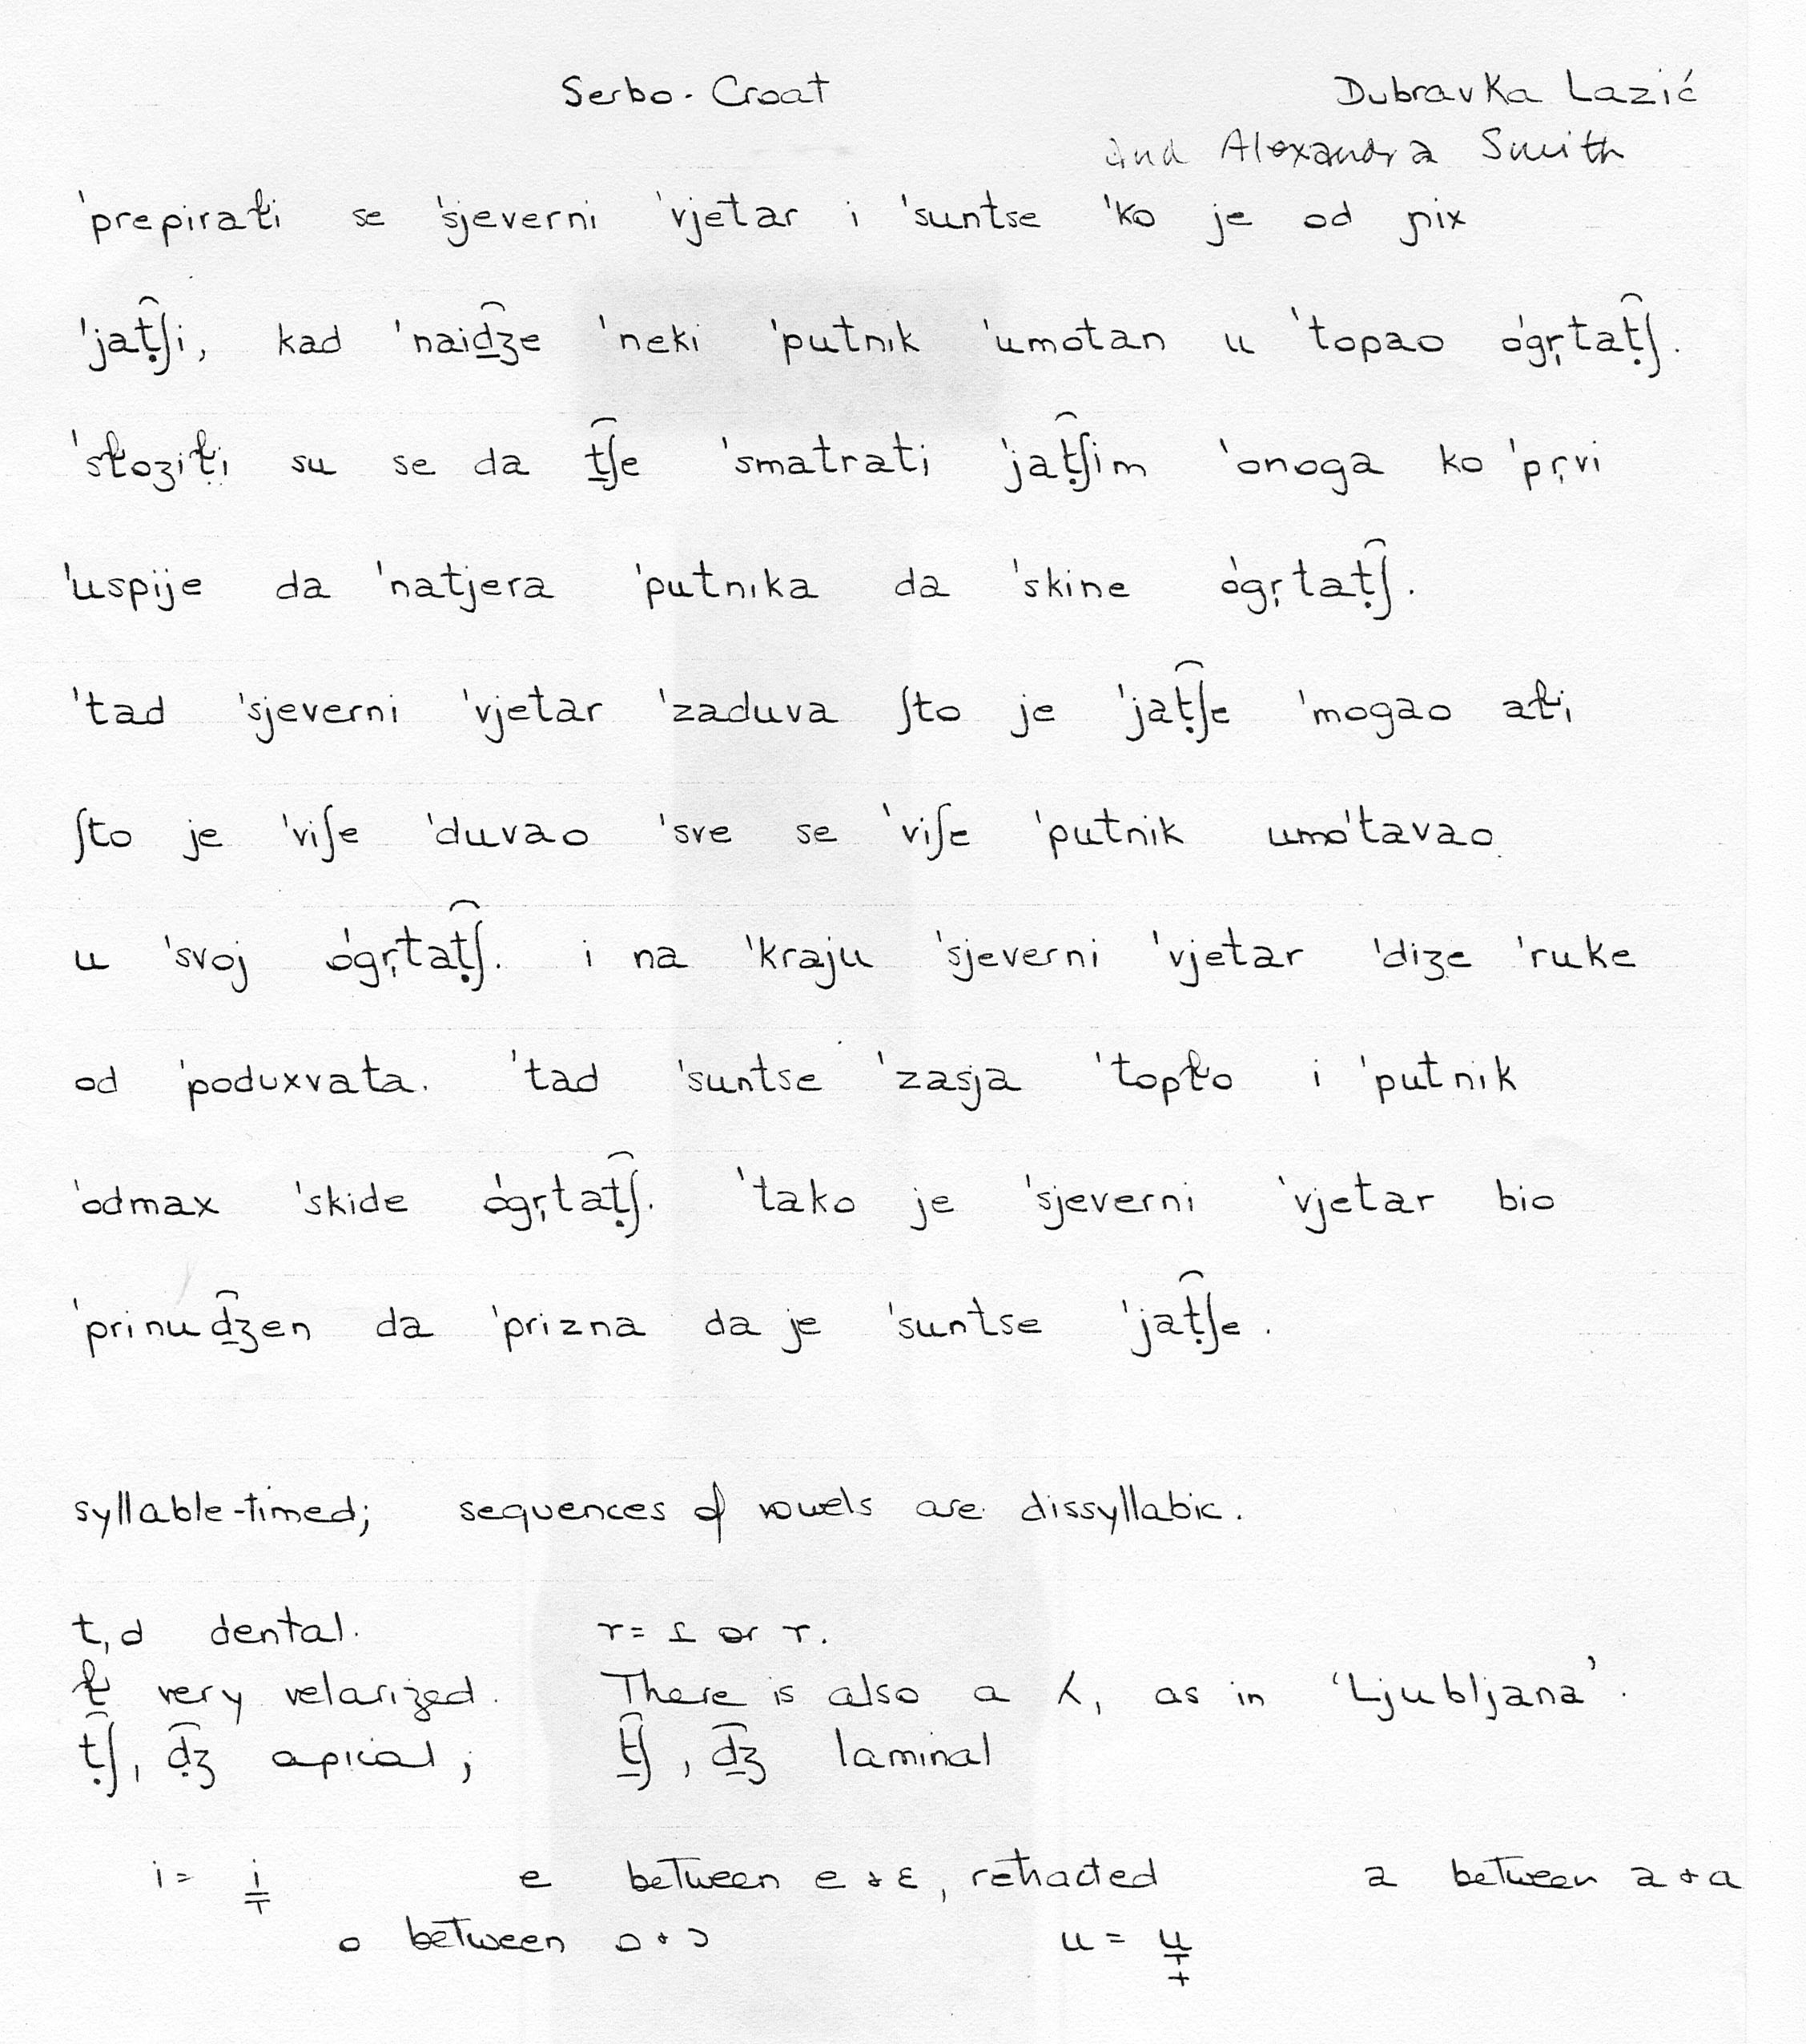 Serbo-Croat Dubravka Lazić
and Alexandra Smith
ˈprepiraɫi se ˈsjeverni ˈvjetar i ˈsuntse ˈko je od ɲix
ˈjaṭ͡ʃi, kad ˈnaid̠͡ʒe ˈneki ˈputnik ˈumotan u ˈtopao ˈogr̩taṭ͡ʃ.
ˈsɫoʒiɫi su se da t̠͡ʃe ˈsmatrati ˈjaṭ͡ʃim ˈonoga ko ˈpr̩vi
ˈuspije da ˈnatjera ˈputnika da ˈskine ˈogr̩taṭ͡ʃ.
ˈtad ˈsjeverni ˈvjetar ˈzaduva ʃto je ˈjaṭ͡ʃe ˈmogao aɫi
ʃto je ˈviʃe ˈduvao ˈsve se ˈviʃe ˈputnik umoˈtavao
u ˈsvoj ˈogr̩taṭ͡ʃ. i na ˈkraju ˈsjeverni ˈvjetar ˈdiʒe ˈruke
od ˈpoduxvata. ˈtad ˈsuntse ˈzasja ˈtopɫo i ˈputnik
ˈodmax ˈskide ˈogr̩taṭ͡ʃ. ˈtako je ˈsjeverni ˈvjetar bio
ˈprinud̠͡ʒen da ˈprizna da je ˈsuntse ˈjaṭ͡ʃe.
syllable-timed; sequences of vowels are dissyllabic.
t, d dental. r = ɾ or r.
ɫ very velarized. There is also a ʎ, as in ‘Ljubljana’.
ṭ͡ʃ, ḍ͡ʒ apical; t̠͡ʃ, d̠͡ʒ laminal
i = i̠˕ e between e & ɛ, retracted a between a & ɑ
o between o & ɔ u = u̞̟